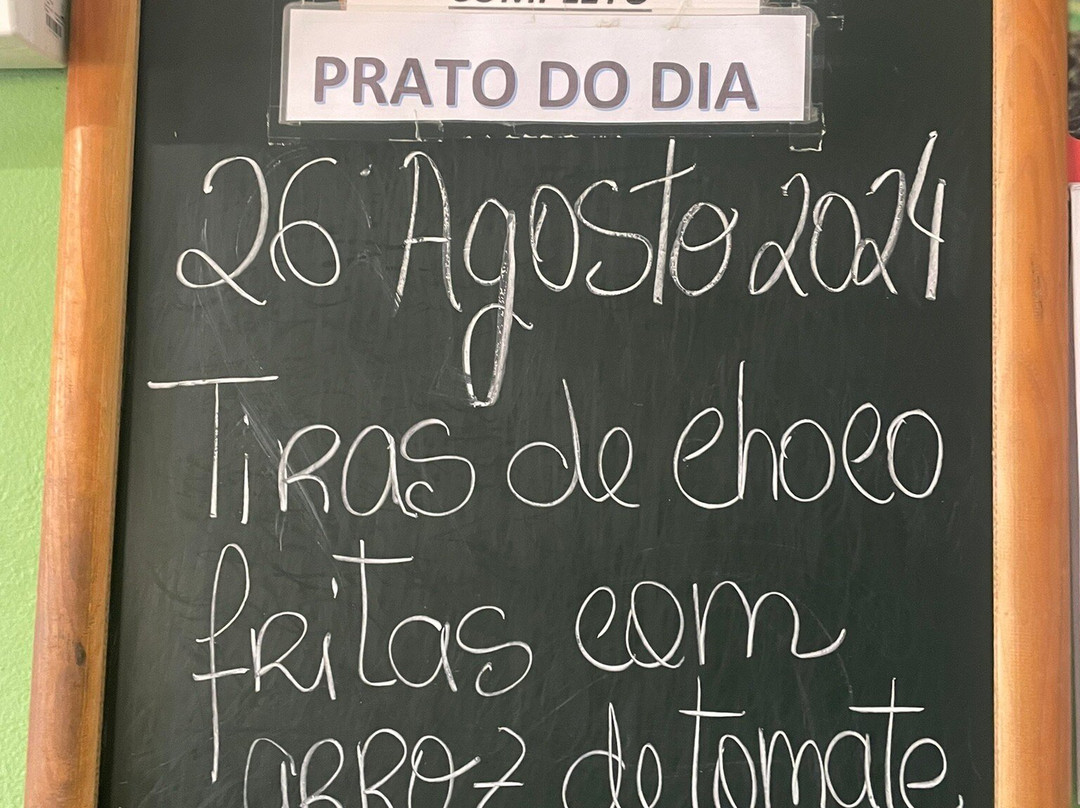 COMPLETO
PRATO DO DIA
26 Agosto 2024
Tiras de choco
fritas com
arroz de tomate